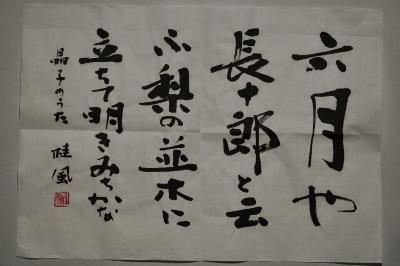 六月や
長十郎と云
ふ梨の並木に
立ちて明きみちかな
晶子のうた 桂風